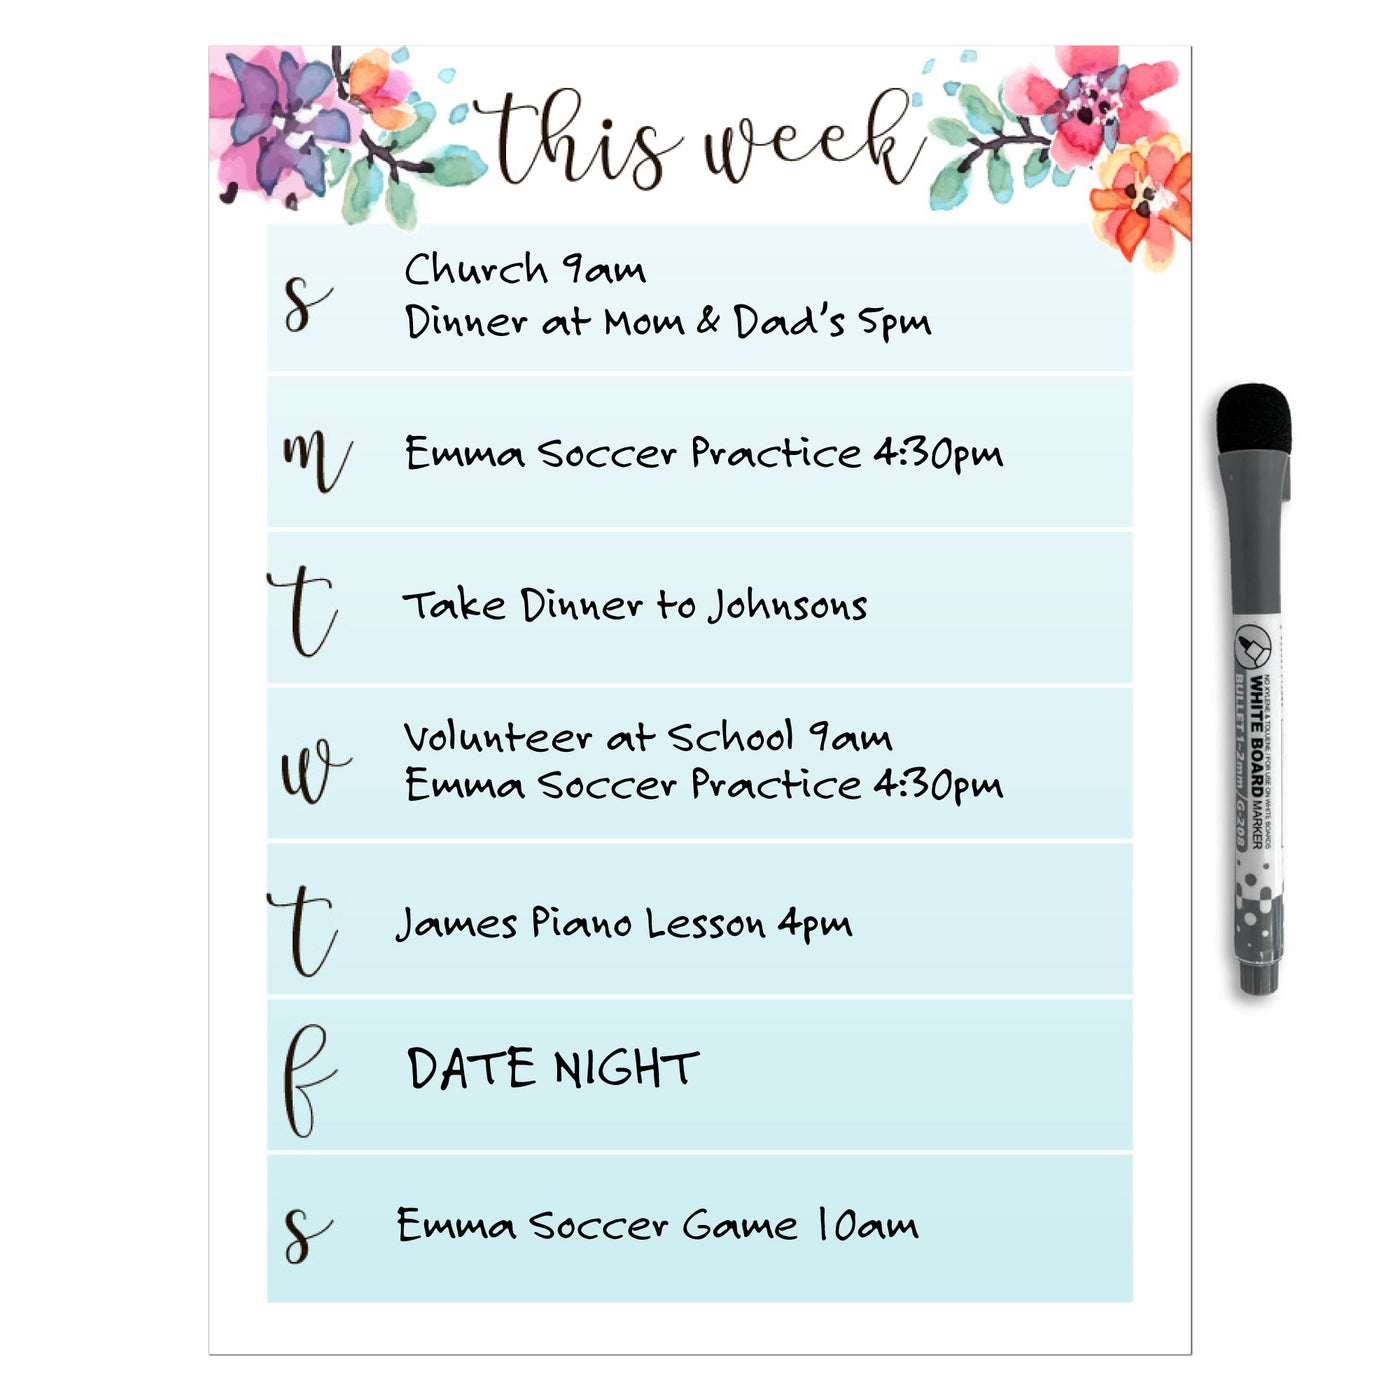 this week
s
Church 9am
Dinner at Mom & Dad's 5pm
m
Emma Soccer Practice 4:30pm
t
Take Dinner to Johnsons
w
Volunteer at School 9am
Emma Soccer Practice 4:30pm
t
James Piano Lesson 4pm
f
DATE NIGHT
s
Emma Soccer Game 10am
NO XYLENE & TOLUENE / FOR USE ON WHITE BOARDS
WHITE BOARD MARKER
BULLET 1-2mm/G-208